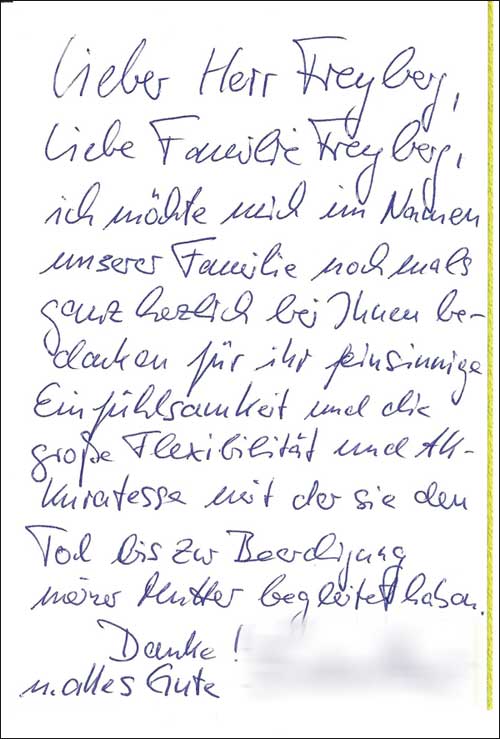 Lieber Herr Freyberg,
Liebe Familie Freyberg,
ich möchte mich im Namen
unserer Familie nochmals
ganz herzlich bei Ihnen be-
danken für ihr feinsinnige
Einfühlsamkeit und die
große Flexibilität und Ak-
kuratesse mit der sie den
Tod bis zur Beerdigung
meiner Mutter begleitet haben.
Danke!
u. alles Gute